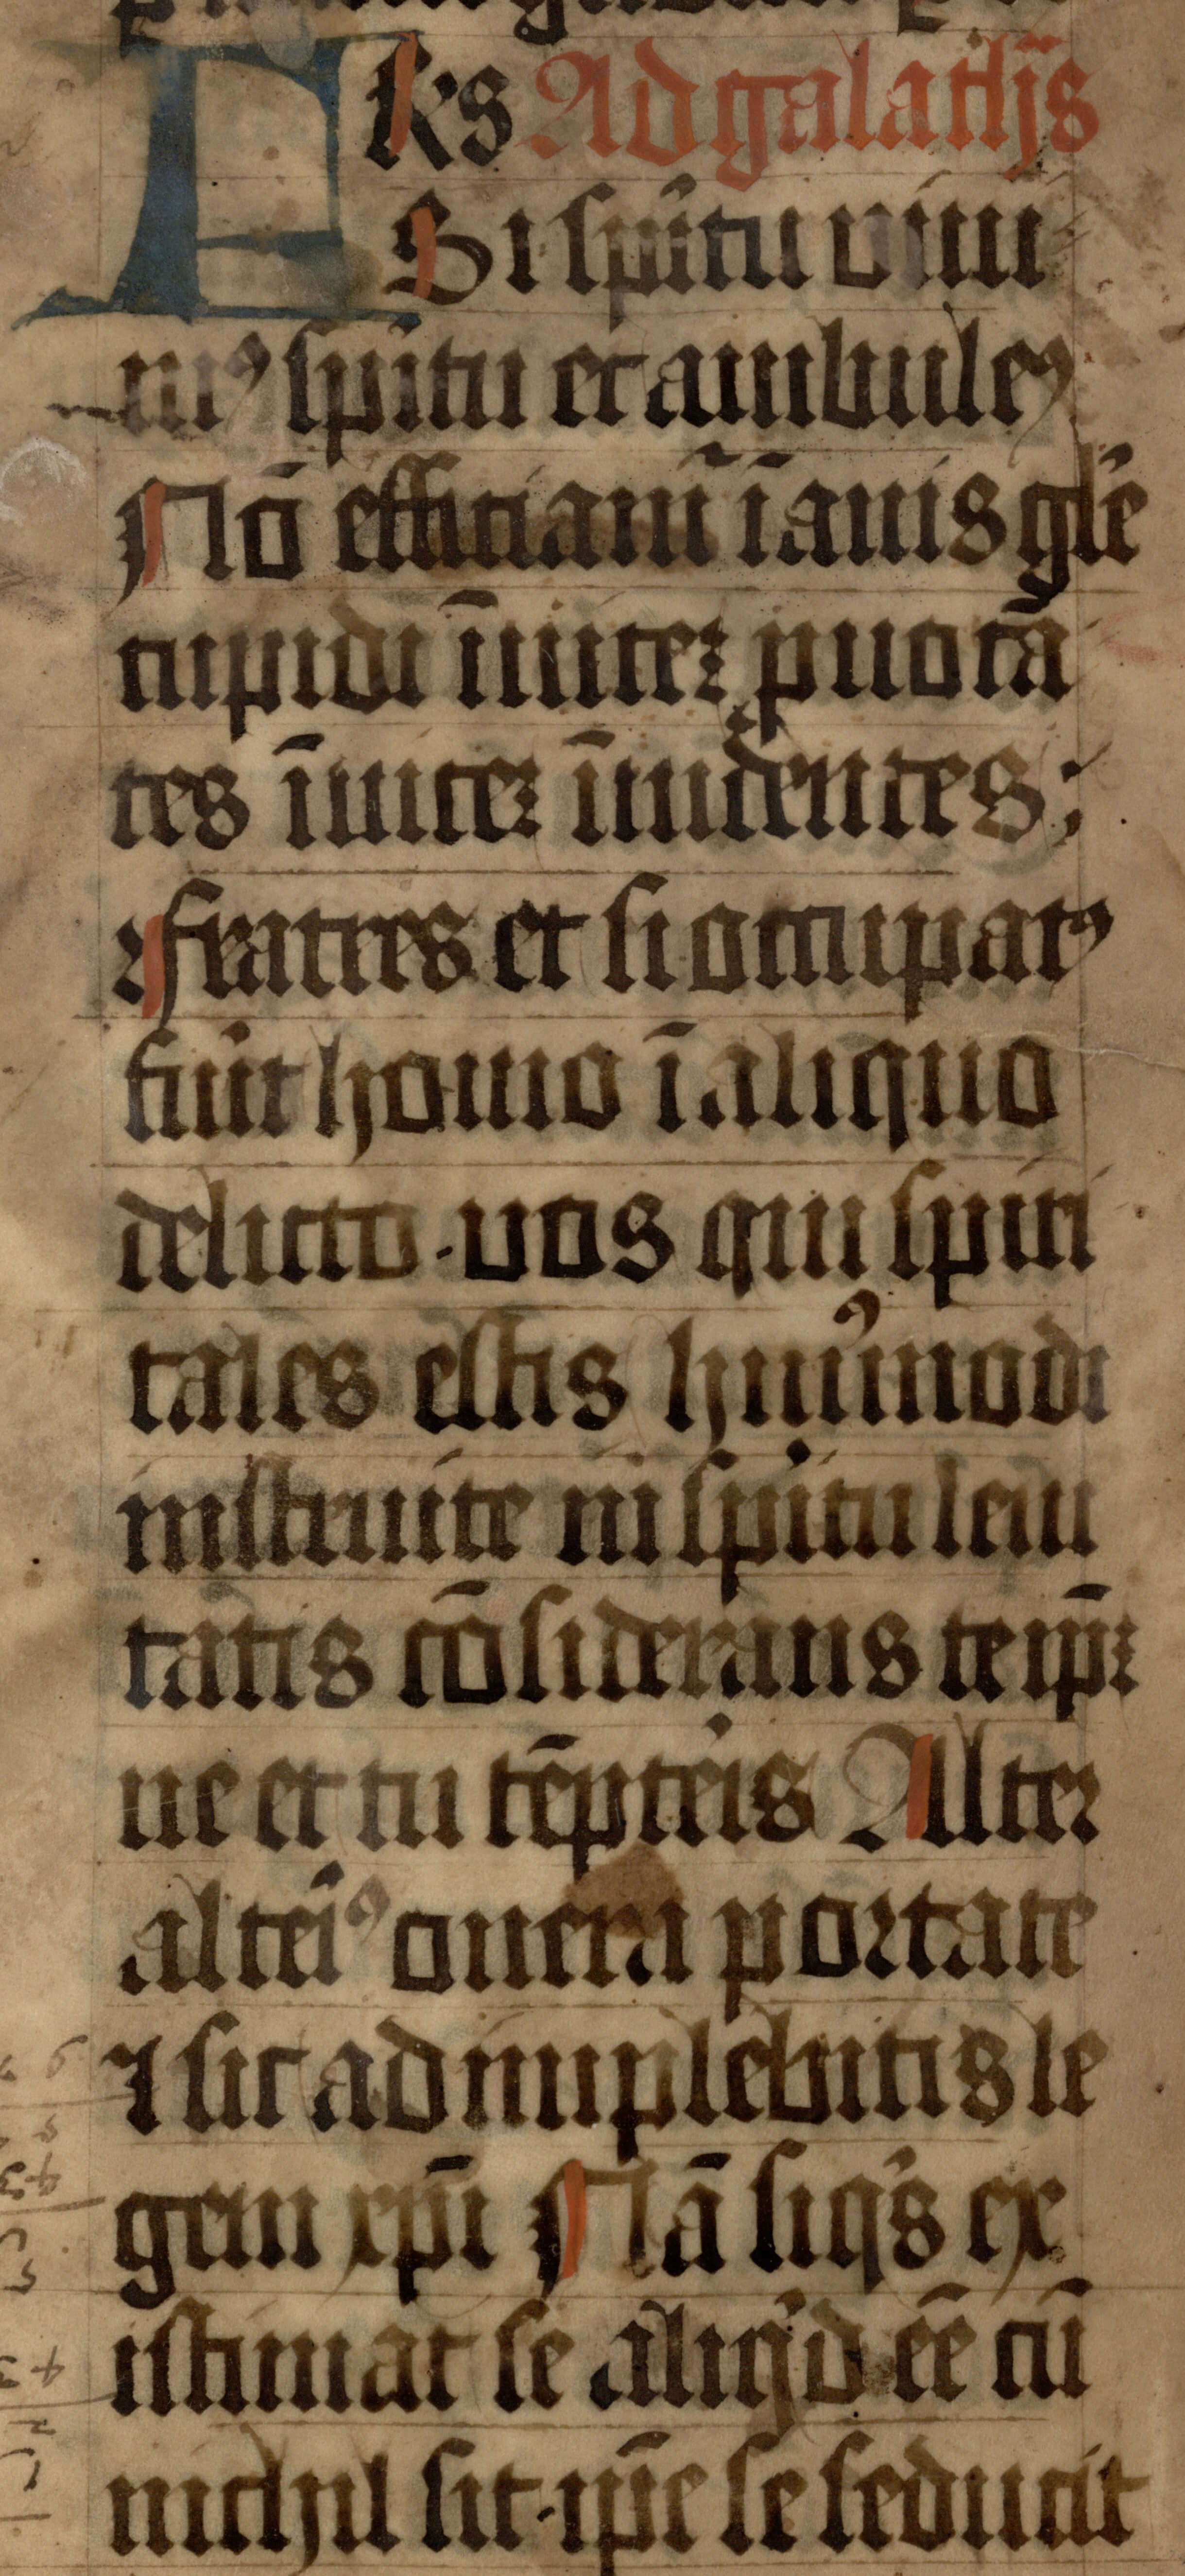 FRs Ad galathjs
Si spitu viui
mꝰ spitu et ambulemꝰ
Nō efficiamᷣ ī anis glīe
cupidi īuicez puocā
tes īuicez īuidentes:
fratres et si occupatꝰ
fuit homo ī aliquo
delicto · vos qui spiri
tales estis huiꝰmodi
instruite in spitu leni
tatis cōsiderans teip̄z
ne et tu tēpteris Alter
alteriꝰ onera portate
⁊ sic adimplebitis le
gem xp̄i Nā si qˢs ex
istimat se aliqͥd eē cū
nichil sit · ip̄e se seducit